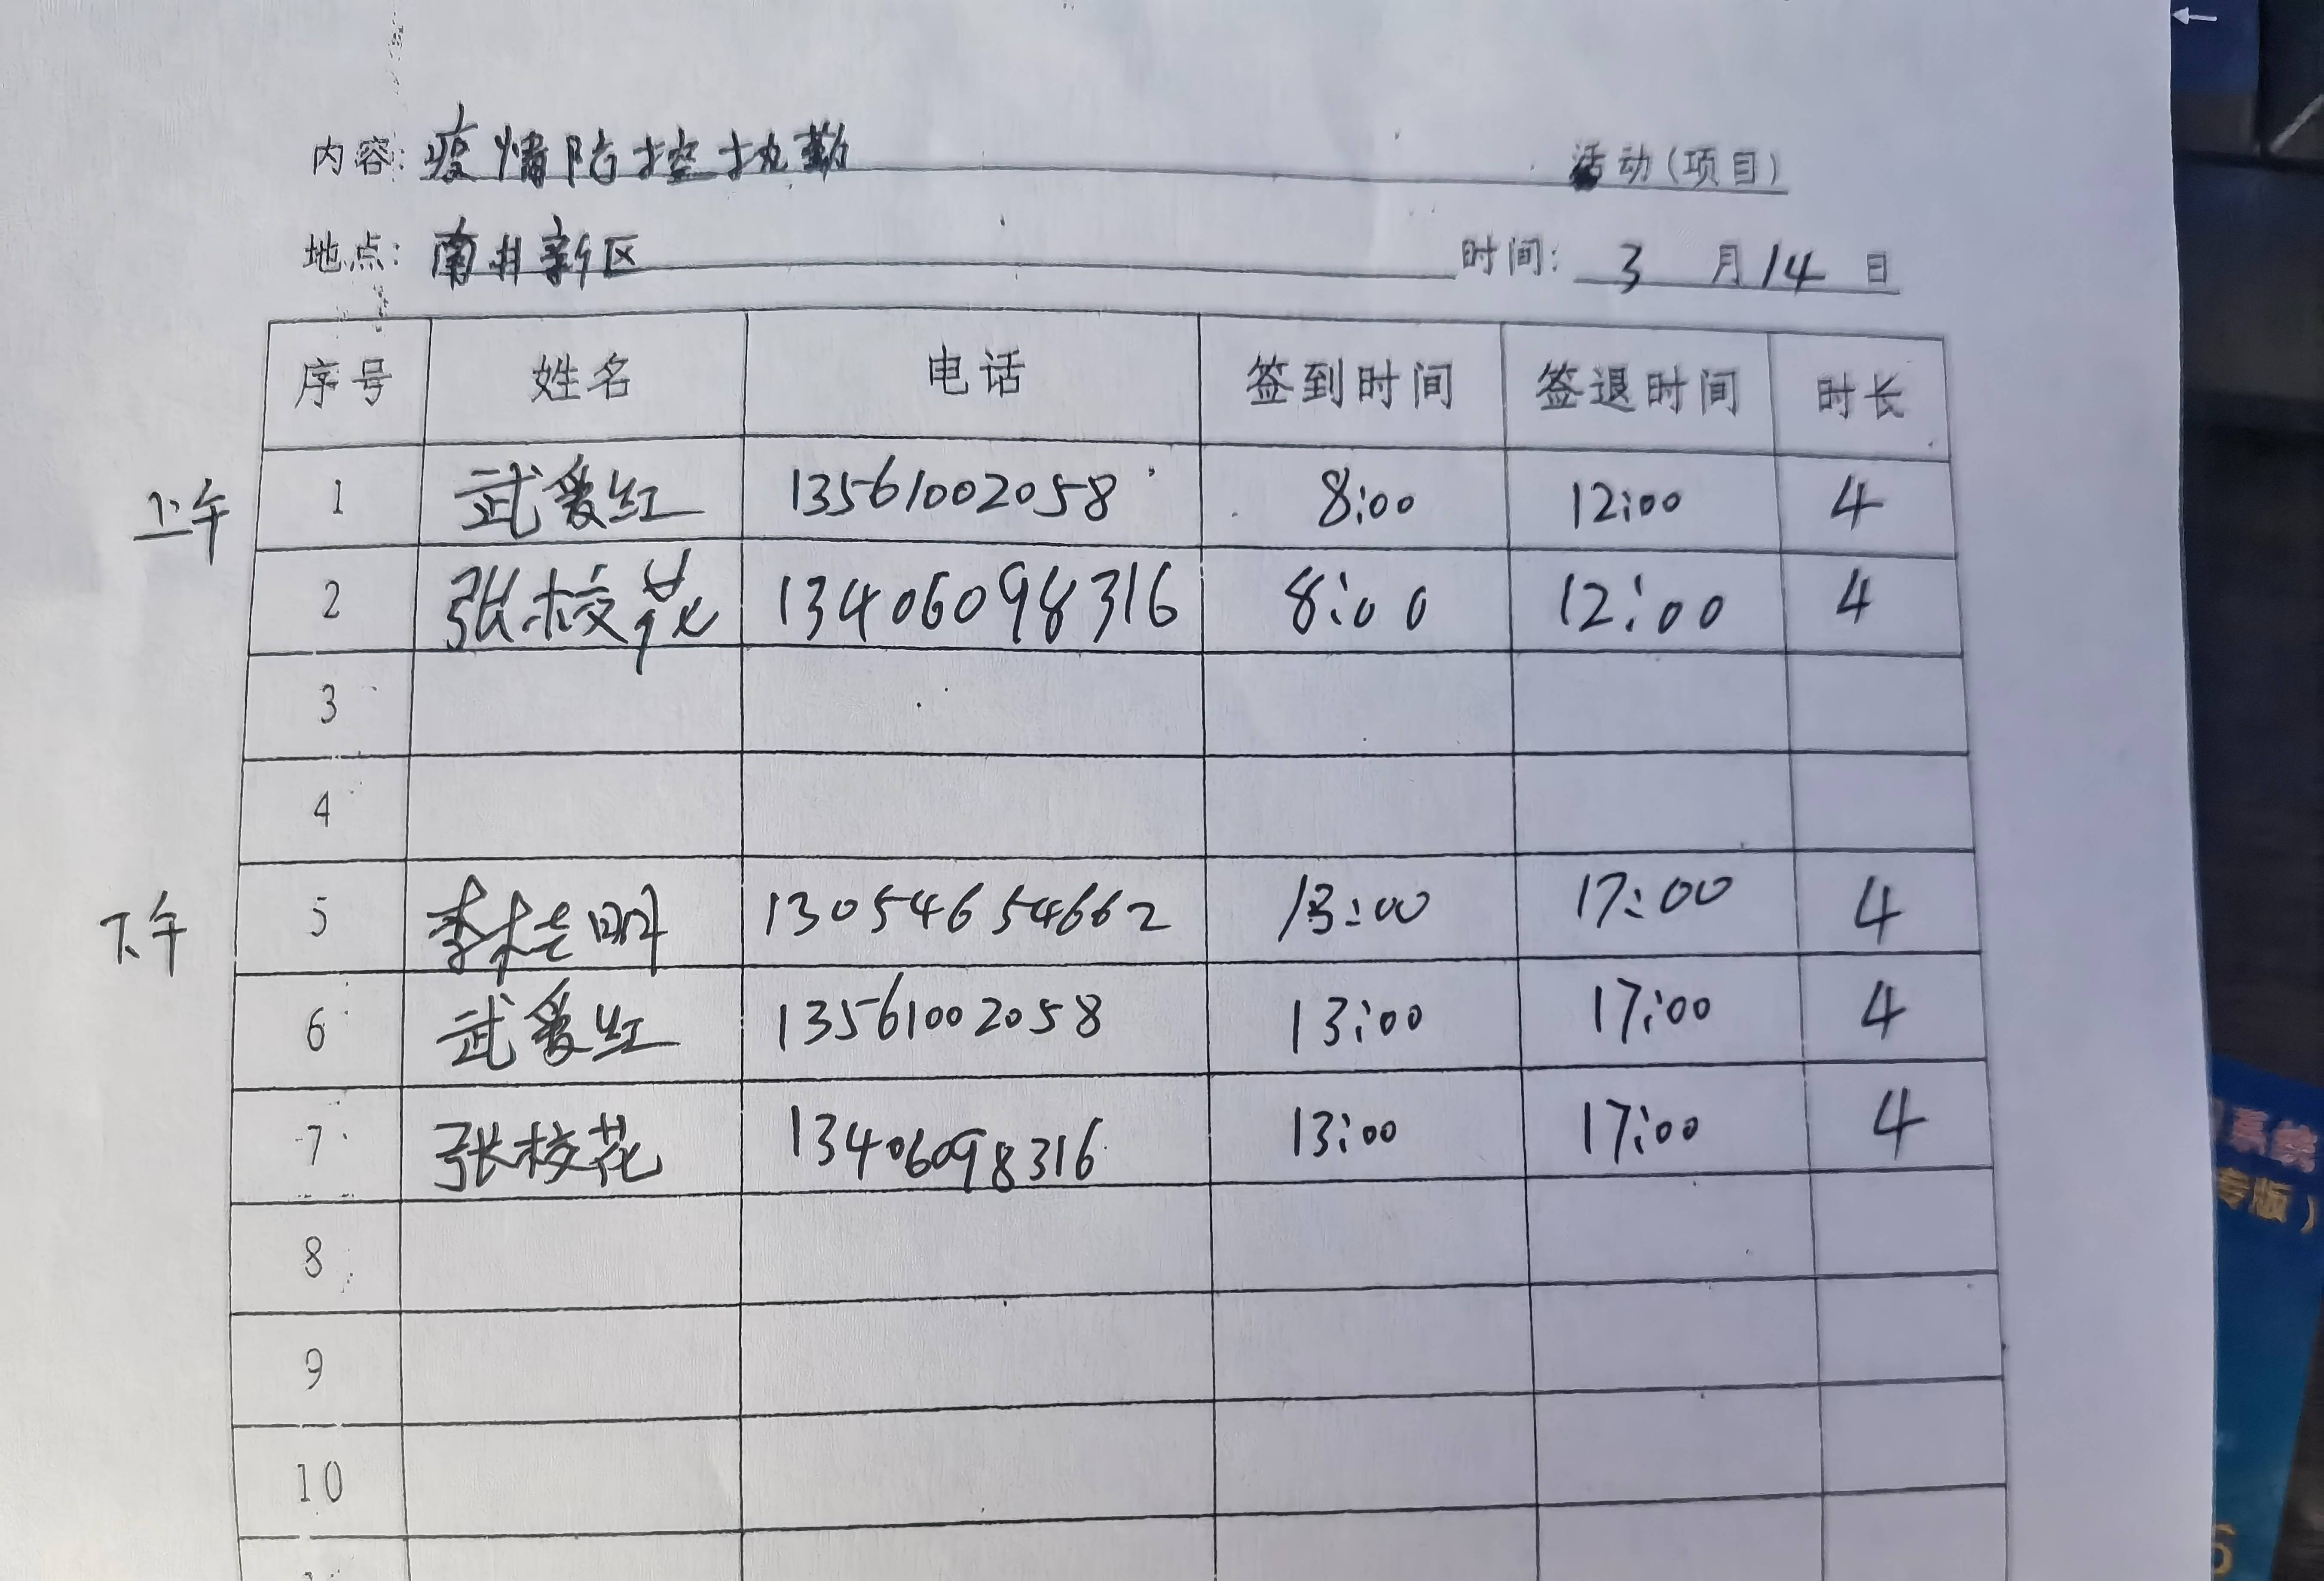 内容: 疫情防控执勤 活动(项目)
地点: 南井新区 时间: 3 月 14 日
序号 姓名 电话 签到时间 签退时间 时长
上午 1 武爱红 13561002058 8:00 12:00 4
2 张校花 13406098316 8:00 12:00 4
3
4
下午 5 李桂明 13054654662 13:00 17:00 4
6 武爱红 13561002058 13:00 17:00 4
7 张校花 13406098316 13:00 17:00 4
8
9
10
系统
专版)